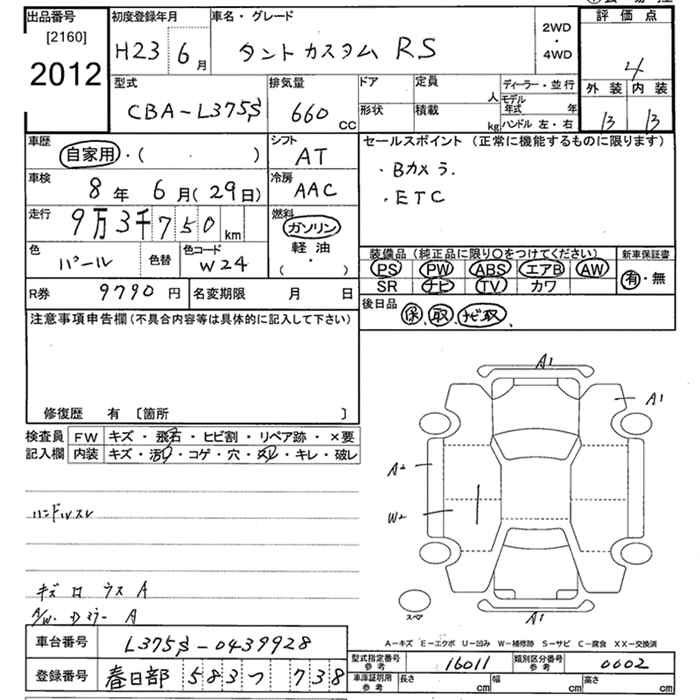 出品番号 初度登録年月 車名・グレード 評価点
[2160]
2012 H23 6月 タントカスタム RS 2WD・4WD 4
型式 排気量 ドア 定員 人 ディーラー・並行 外装 内装
CBA-L375S 660cc 形状 積載 kg モデル年式 年 B B
ハンドル 左・右
車歴 シフト セールスポイント (正常に機能するものに限ります)
自家用・( ) AT ・Bカメラ.
車検 冷房 ・ETC
8年 6月(29日) AAC
走行 燃料
9万3千750km ガソリン
軽油
( )
色 色替 色コード 装備品 (純正品に限り○をつけてください) 新車保証書
パール W24 PS PW ABS エアB AW 有・無
SR ナビ TV カワ
R券 9790円 名変期限 月 日 後日品
保 取 ナビ取
注意事項申告欄(不具合内容等は具体的に記入して下さい)
修復歴 有 [箇所 ]
検査員 FW キズ・飛石・ヒビ割・リペア跡・×要
記入欄 内装 キズ・汚れ・コゲ・穴・・キレ・破レ
A1
A1
A2
W2
ハンドルスレ
キズ A
A/W. A
スペア
A1
A-キズ E-エクボ U-凹み W-補修跡 S-サビ C-腐食 XX-交換済
車台番号 L375S-0439928
型式指定番号 参考 16011 類別区分番号 参考 0002
登録番号 春日部 583 つ 738
車庫証明用 参考 長さ cm 幅 cm 高さ cm